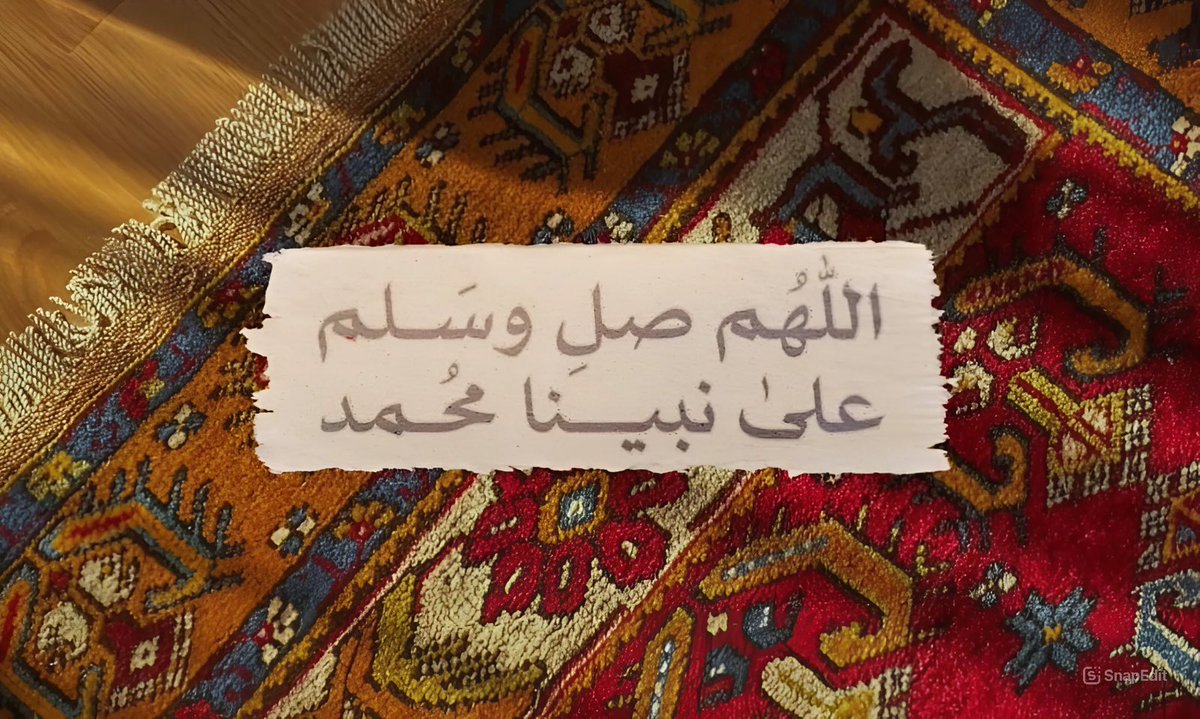 اللّٰهُم صلِ وسَـلم
علىٰ نبيـــنا محُـمد
SnapEdit